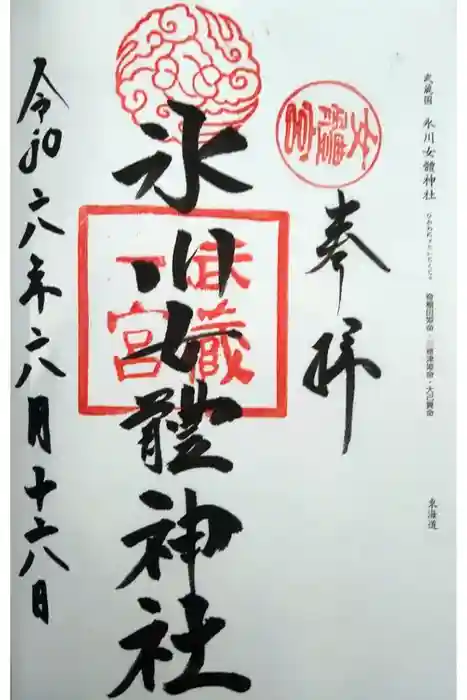 武蔵国 氷川女體神社 ひかわにょたいじんじゃ 奇稲田姫命・三穂津姫命・大己貴命 東海道
奉拝
氷川女體神社
武蔵
一宮
令和六年六月十六日